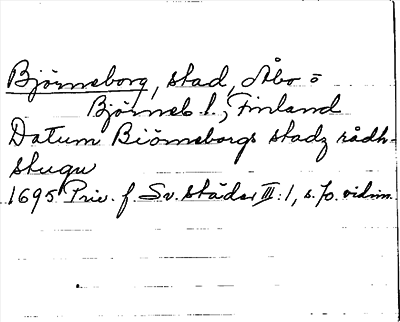 Björneborg, stad, Åbo o
Björneb. l., Finland
Datum Biörneborgs stadz rådh-
stugu
1695 Priv. f. Sv. städer III:1, s. 70. vidim.